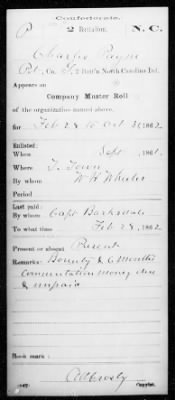 Confederate.
P 2 Battalion. N. C.
Charles Payne
Pvt, Co. 2 Batt'n North Carolina Inf.
Appears on
Company Muster Roll
of the organization named above,
for Feb 28 to Oct 31, 1862.
Enlisted:
When Sept, 1861.
Where T. Town
By whom W H Wheeler
Period
Last paid:
By whom Capt Barksdale
To what time Feb 28, 1862.
Present or absent Present
Remarks: Bounty & 6 months
Commutation money due
& unpaid
Book mark:
Copyist.